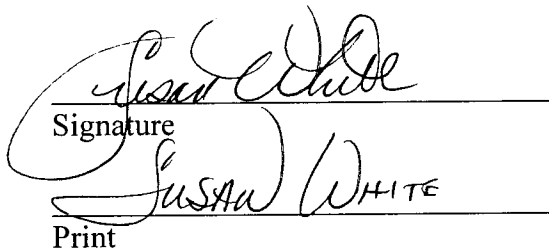 Susan White
Signature
SUSAN WHITE
Print